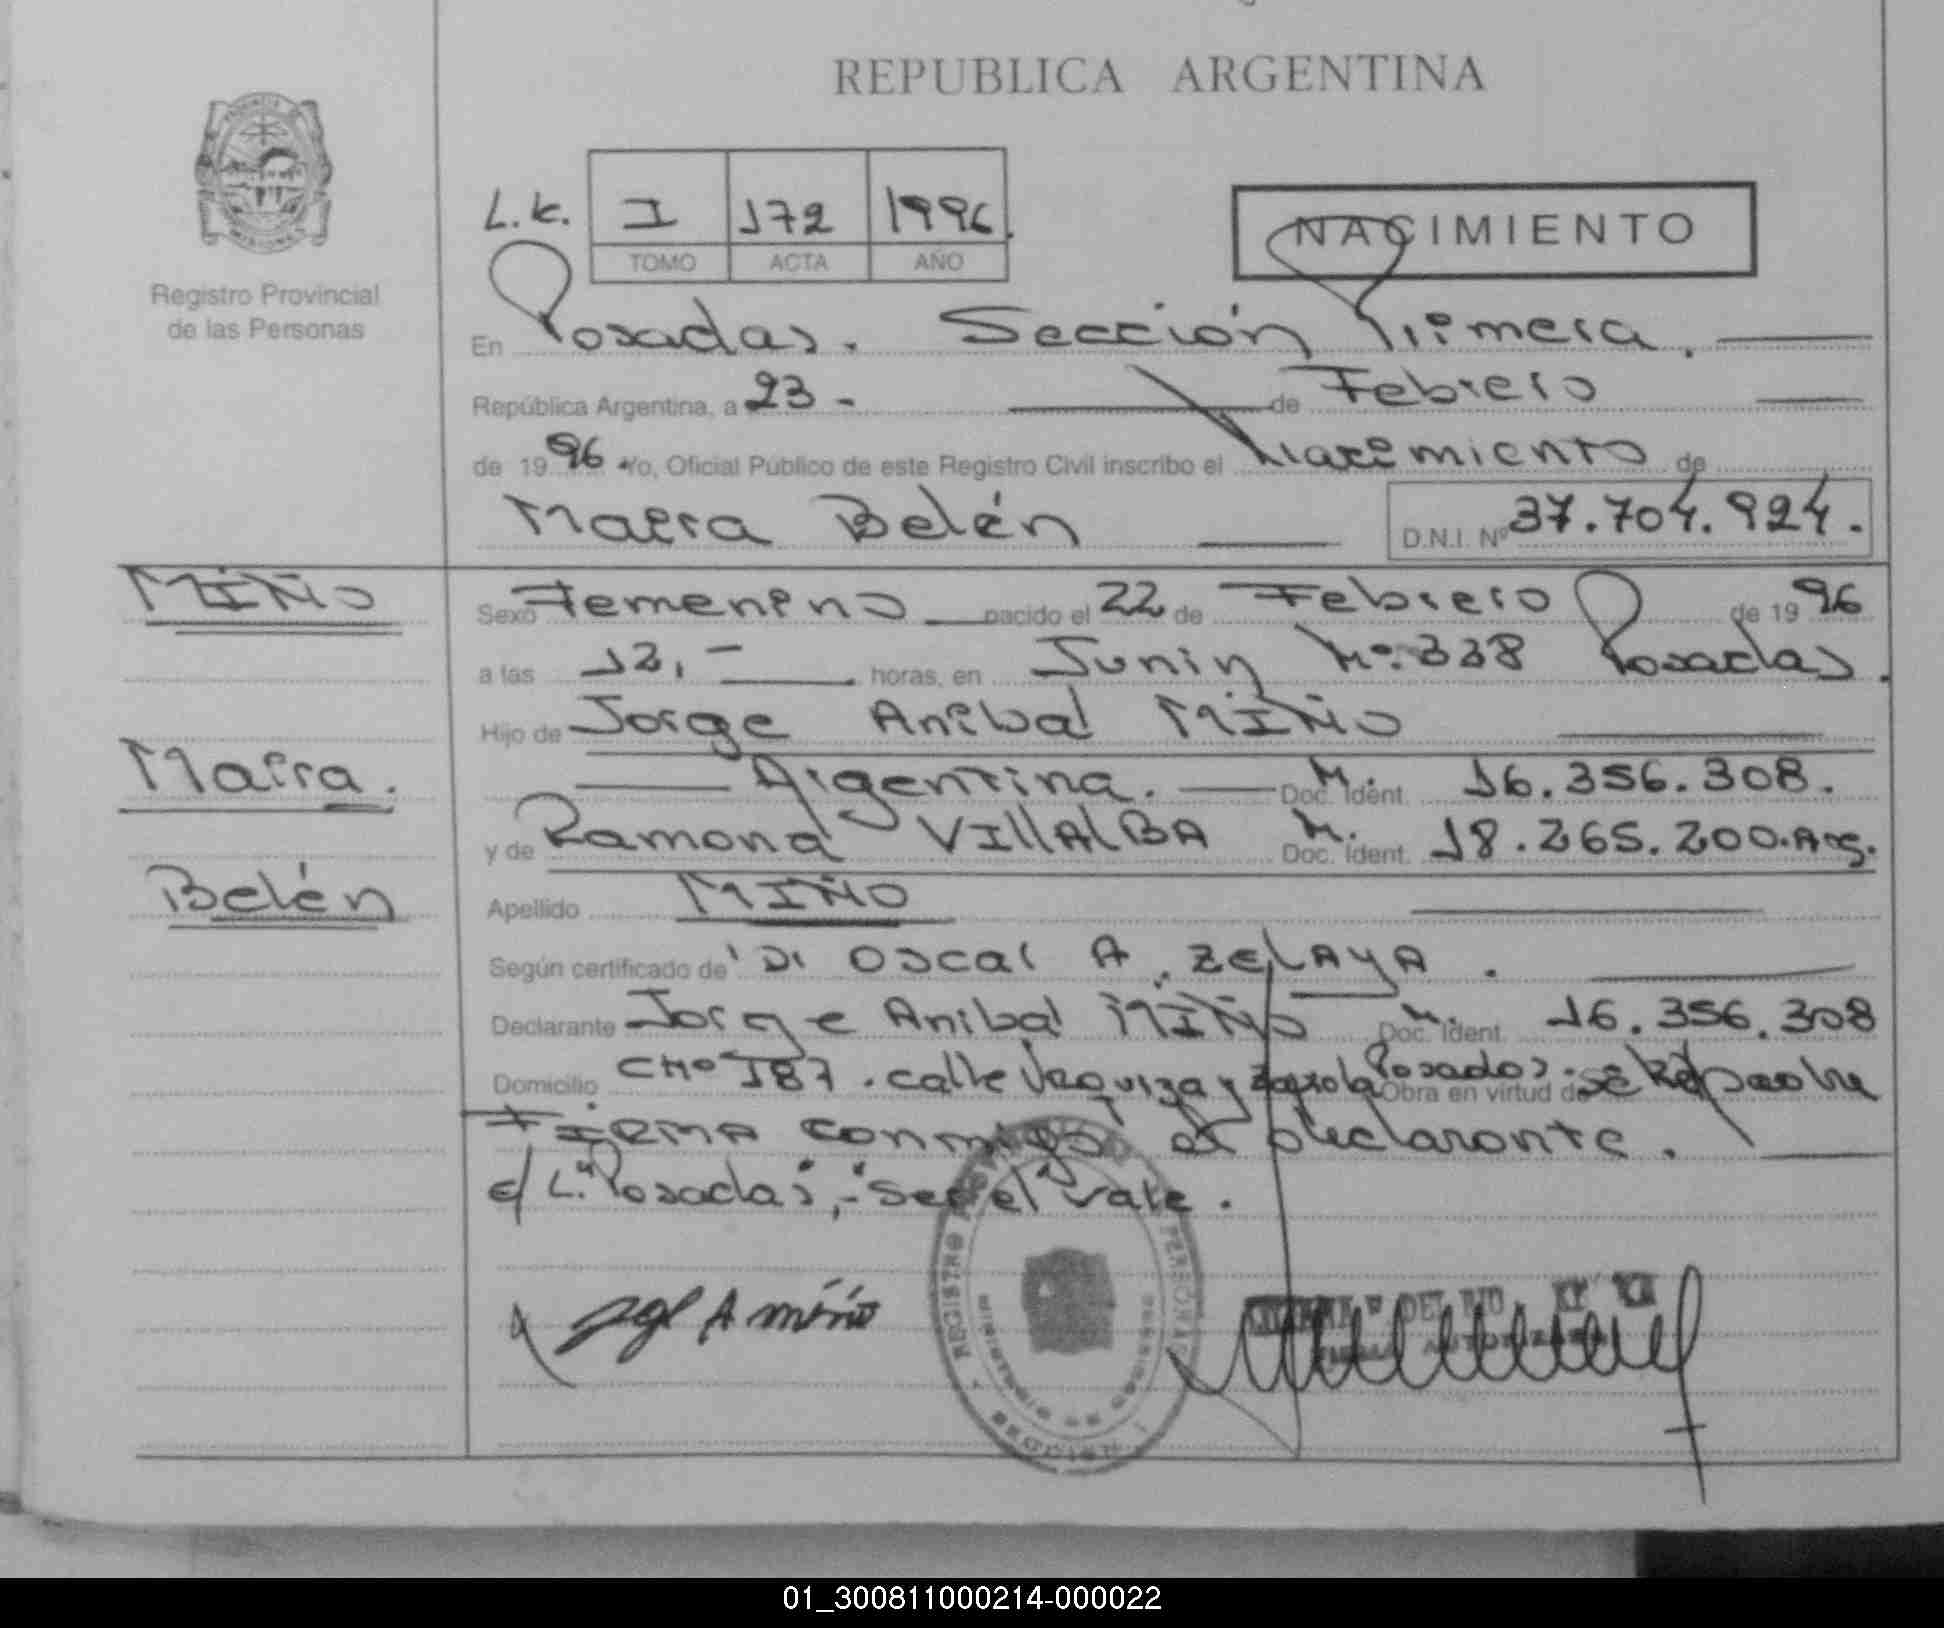 REPUBLICA ARGENTINA
PROVINCIA DE MISIONES
Registro Provincial
de las Personas
L.K. I 172 1996.
TOMO ACTA AÑO
NACIMIENTO
En Posadas. Sección Primera.
República Argentina, a 23 - de Febrero
de 1996 Yo, Oficial Público de este Registro Civil inscribo el Nacimiento de
Maira Belén D.N.I. Nº 37.704.924.
MIÑO
Maira.
Belén
Sexo Femenino nacido el 22 de Febrero de 1996
a las 12,- horas, en Junin Nº 338 Posadas.
Hijo de Jorge Anibal MIÑO
Argentina. Doc. Ident. M. 16.356.308.
y de Ramona VIllAlBA Doc. Ident. M. 18.265.200. Arg.
Apellido MIÑO
Según certificado de Dr Oscar A. ZELAYA.
Declarante Jorge Anibal MIÑO Doc. Ident. M. 16.356.308
Domicilio CHº 187. calle y Posadas. Obra en virtud de
Firma conmigo el declarante.
e/ L. "Posadas", - "se el" vale.
Jge A miño
REGISTRO PERSONAS
DEL RIO
FIRMA AUTORIZADA
01_300811000214-000022